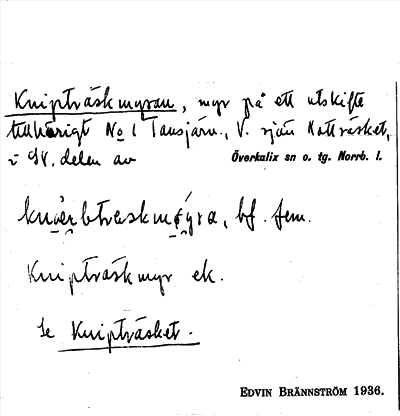 Knipträskmyran, myr på ett utskifte
tillhörigt No 1 Tansjärn., V. sjön Kotträsket,
i SV. delen av Överkalix sn o. tg. Norrb. l.
bf. fem.
Knipträskmyr ek.
Se Knipträsket.
EDVIN BRÄNNSTRÖM 1936.